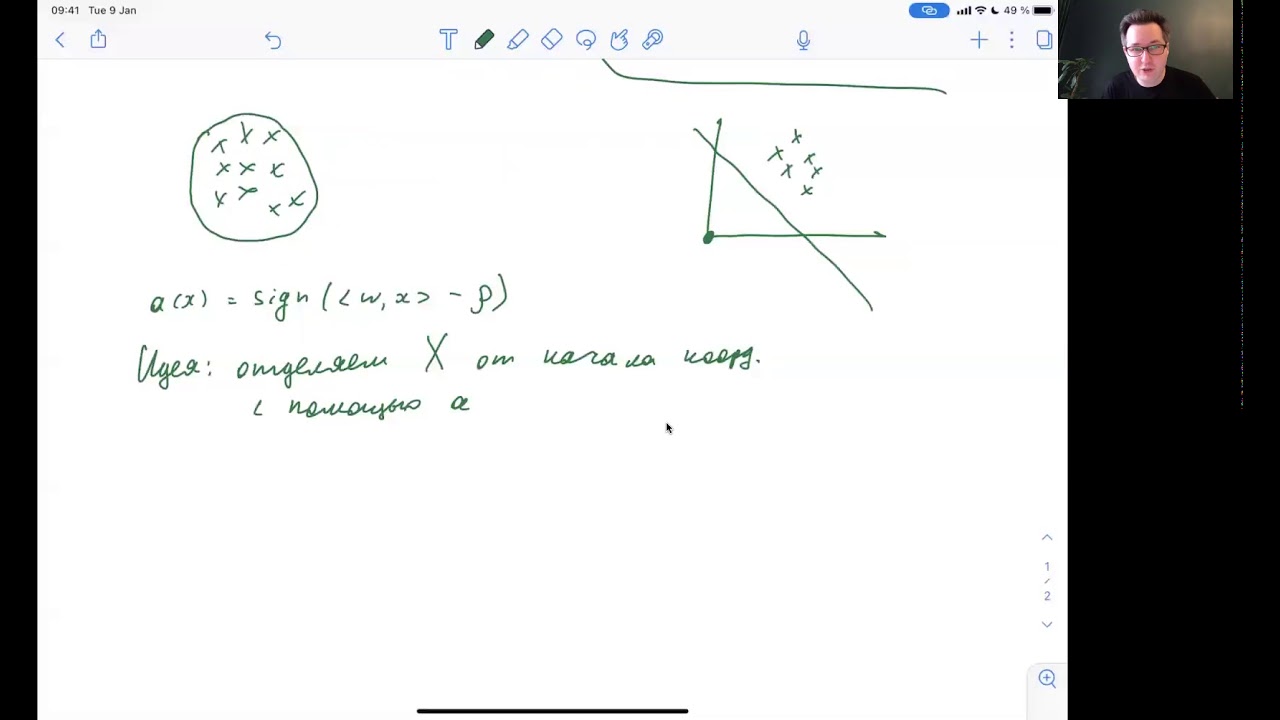 09:41 Tue 9 Jan
49 %
T
a(x) = sign(<w, x> - ρ)
Идея: отделяем X от начала коорд.
с помощью a
1
/
2